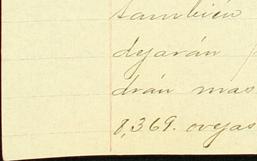 también
dejarán
drán mas
8,369. ovejas